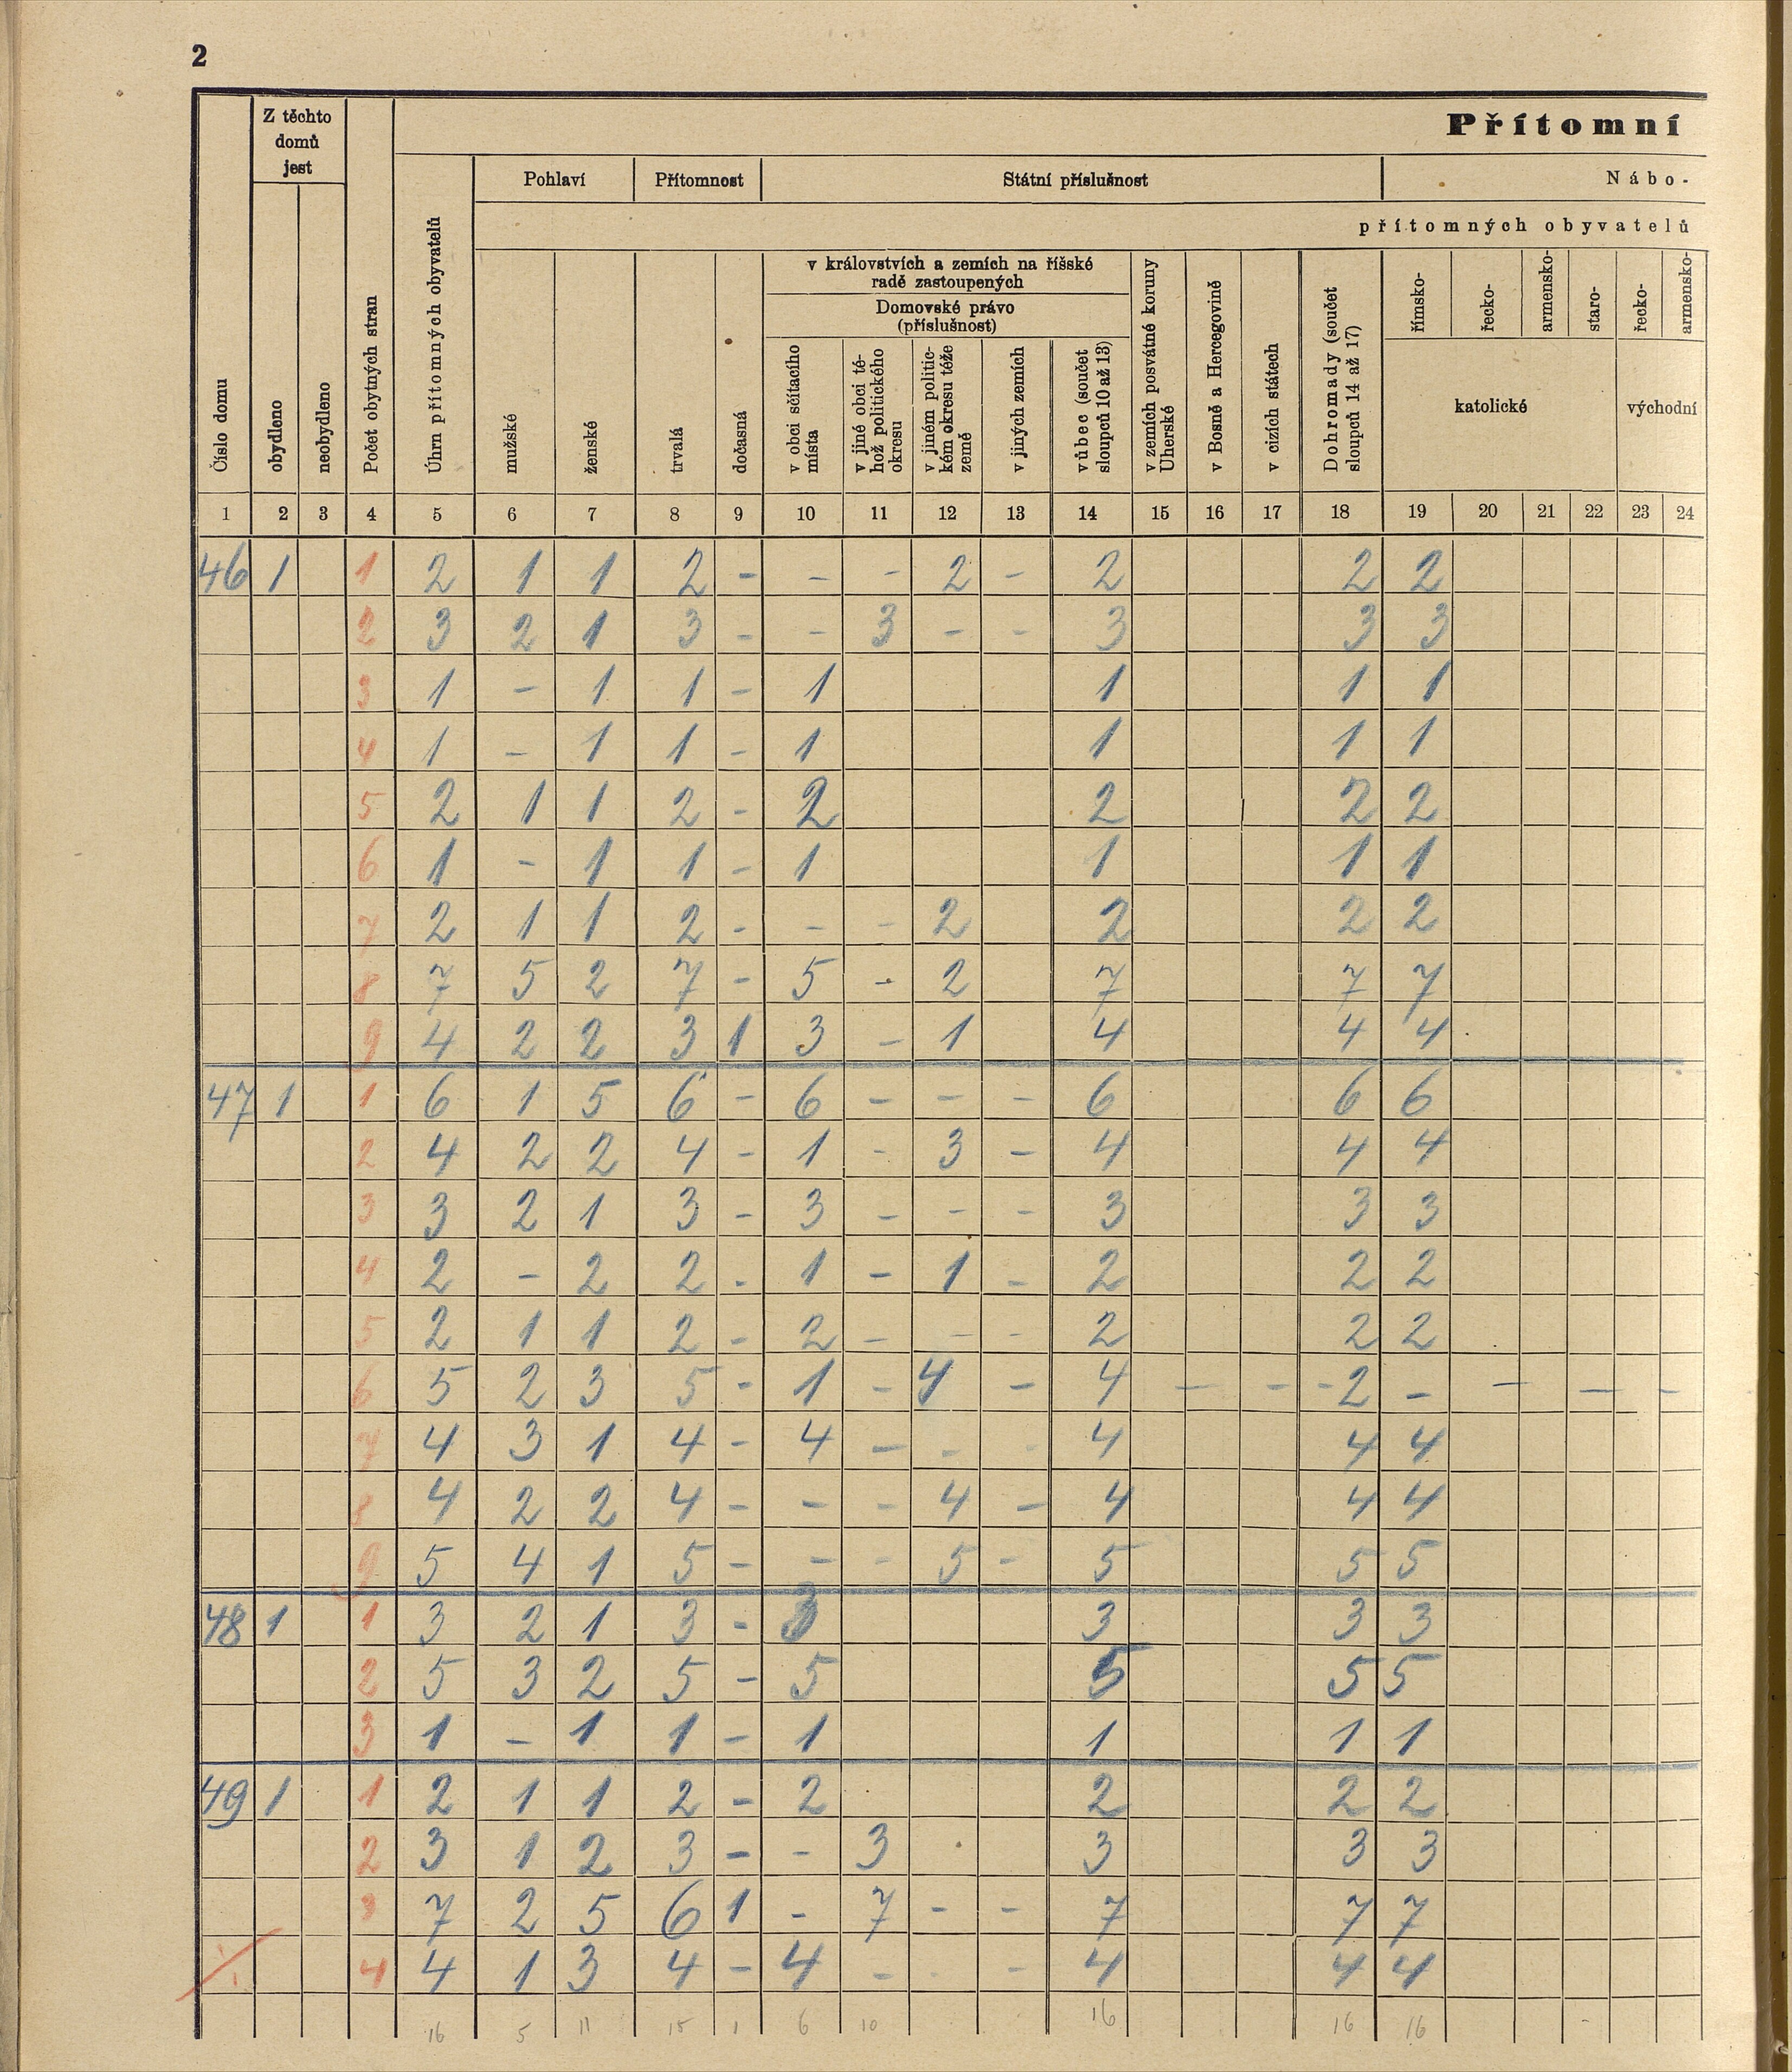 2
Z těchto domů jest
Přítomní
Pohlaví Přítomnost Státní příslušnost Nábo-
přítomných obyvatelů
v královstvích a zemích na říšské radě zastoupených
Domovské právo (příslušnost)
Číslo domu
obydleno
neobydleno
Počet obytných stran
Úhrn přítomných obyvatelů
mužské
ženské
trvalá
dočasná
v obci sčítacího místa
v jiné obci téhož politického okresu
v jiném politickém okresu téže země
v jiných zemích
vůbec (součet sloupců 10 až 13)
v zemích posvátné koruny Uherské
v Bosně a Hercegovině
v cizích státech
Dohromady (součet sloupců 14 až 17)
římsko-
řecko-
armensko-
staro-
řecko-
armensko-
katolické
východní
1 2 3 4 5 6 7 8 9 10 11 12 13 14 15 16 17 18 19 20 21 22 23 24
46 1 1 2 1 1 2 - - - 2 - 2 2 2
2 3 2 1 3 - - 3 - - 3 3 3
3 1 - 1 1 - 1 1 1 1
4 1 - 1 1 - 1 1 1 1
5 2 1 1 2 - 2 2 2 2
6 1 - 1 1 - 1 1 1 1
7 2 1 1 2 - - - 2 2 2 2
8 7 5 2 7 - 5 - 2 7 7 7
9 4 2 2 3 1 3 - 1 4 4 4
47 1 1 6 1 5 6 - 6 - - - 6 6 6
2 4 2 2 4 - 1 - 3 - 4 4 4
3 3 2 1 3 - 3 - - - 3 3 3
4 2 - 2 2 - 1 - 1 - 2 2 2
5 2 1 1 2 - 2 - - - 2 2 2
6 5 2 3 5 - 1 - 4 - 4 - - - 2 - - - -
7 4 3 1 4 - 4 - - - 4 4 4
8 4 2 2 4 - - - 4 - 4 4 4
9 5 4 1 5 - - - 5 - 5 5 5
48 1 1 3 2 1 3 - 3 3 3 3
2 5 3 2 5 - 5 5 5 5
3 1 - 1 1 - 1 1 1 1
49 1 1 2 1 1 2 - 2 2 2 2
2 3 1 2 3 - - 3 3 3 3
3 7 2 5 6 1 - 7 - - 7 7 7
4 4 1 3 4 - 4 - - - 4 4 4
16 5 11 15 1 6 10 16 16 16